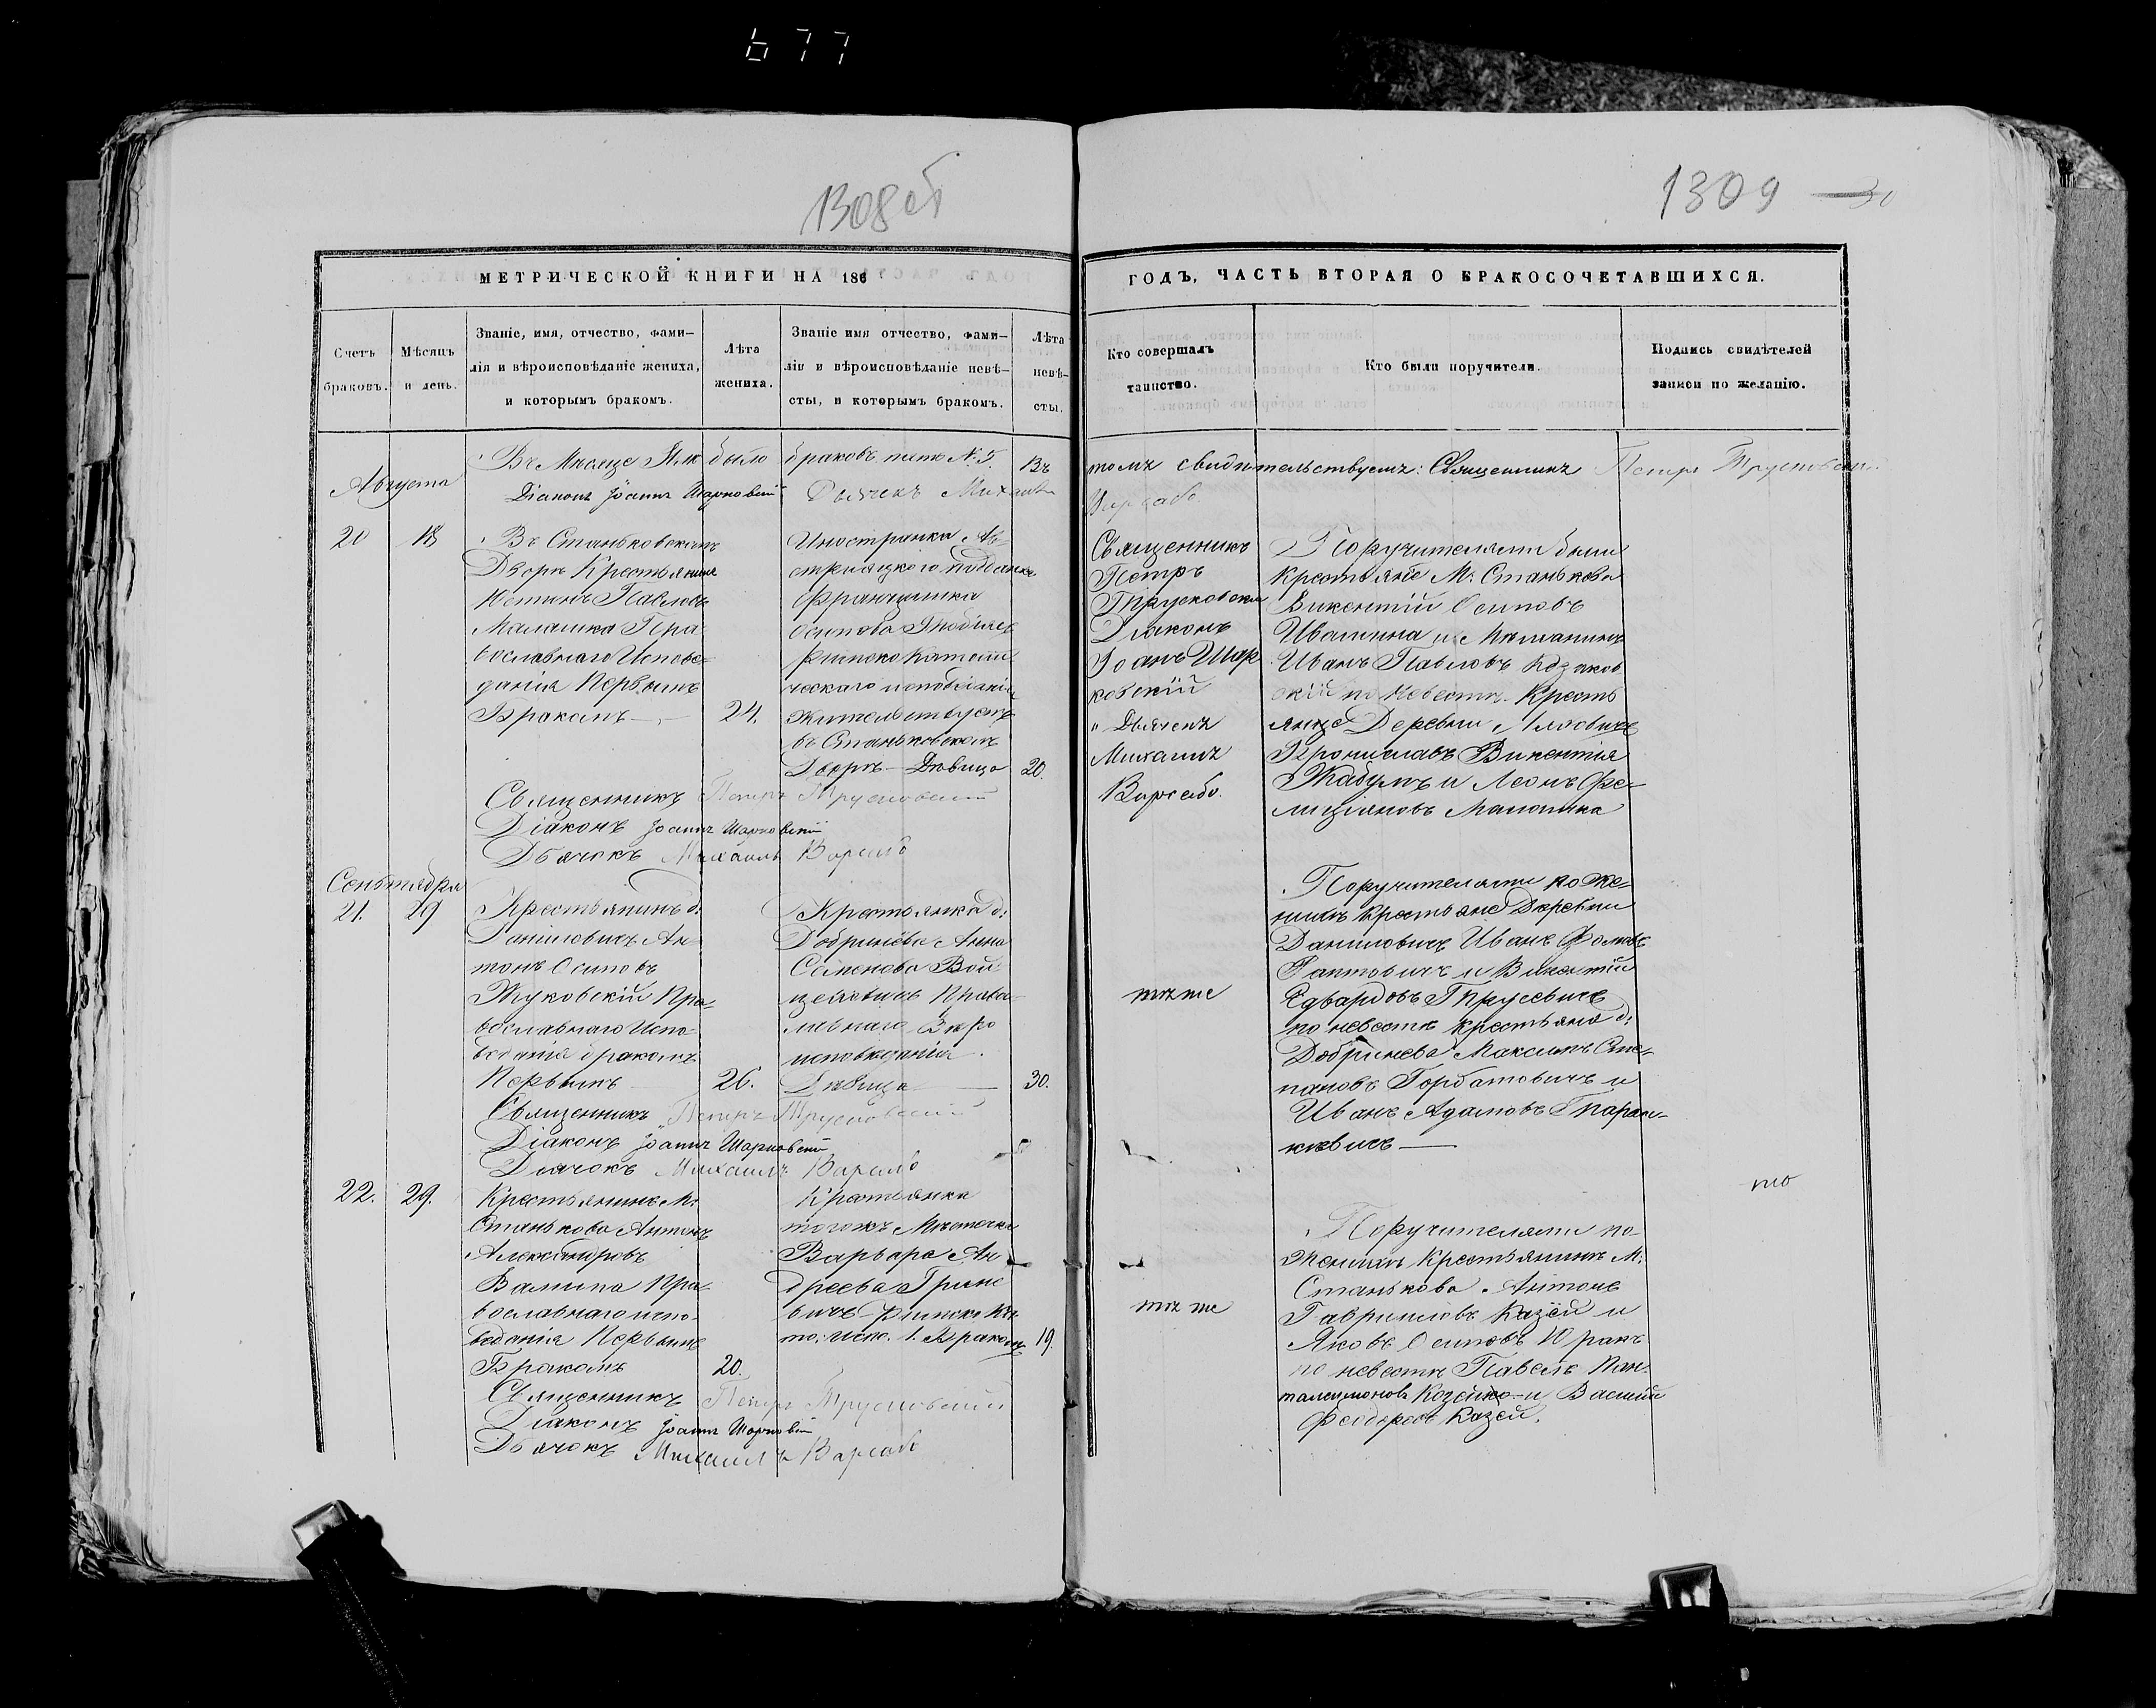 677
1308 об
1309
30
МЕТРИЧЕСКОЙ КНИГИ НА 186
ГОДЪ, ЧАСТЬ ВТОРАЯ О БРАКОСОЧЕТАВШИХСЯ.
Счетъ
браковъ.
Мѣсяцъ
и день.
Званіе, имя, отчество, фами-
лія и вѣроисповѣданіе жениха,
и которымъ бракомъ.
Лѣта
жениха.
Званіе имя отчество, фами-
лія и вѣроисповѣданіе невѣ-
сты, и которымъ бракомъ.
Лѣта
невѣ-
сты.
Кто совершалъ
таинство.
Кто были поручители.
Подпись свидѣтелей
записи по желанію.
Въ Мѣсяце было браковъ пять №. 5. Въ
томъ свидѣтельствуемъ: Священникъ Петръ Трусковскій
Діаконъ Іоаннъ Шарковскій Дьячекъ Михаилъ
Варсабо
Августа
20
18
Въ Станьковскомъ
Дворѣ Крестьянинъ
Юстинъ Павловъ
Малашка Пра-
вославнаго Исповѣ-
данія Первымъ
Бракомъ
24.
Иностранка Ав-
стрійскаго подданка
Францишка
Осипова
Римско Католи-
ческаго исповѣданія
жительствуетъ
въ Станьковскомъ
Дворѣ Дѣвица
20.
Священникъ
Петръ
Трусковскій
Діаконъ
Іоанъ Шар
ковскій
" Дьячекъ
Михаилъ
Варсабо.
Поручителями были
Крестьяне М. Станькова
Викентій Осиповъ
Ивашина и Мѣщанинъ
Иванъ Павловъ Козаков
скій по невестѣ Кресть
янце Деревни
Брониславъ Викентія
Жабунъ и Леонъ Фе-
лиціяновъ Малошка
Священникъ Петръ Трусковскій
Діаконъ Іоаннъ Шарковскій
Дьячокъ Михаилъ Варсабо
Сентября
21.
29
Крестьянинъ д:
Даниловичъ Ан-
тонъ Осиповъ
Жуковскій Пра-
вославнаго Испо-
веданія бракомъ
Первымъ
26.
Крестьянка д:
Добринева Анна
Семенова Вой-
Правос-
лавнаго Вѣро
исповѣданія.
Дѣвица
30.
тѣ же
Поручителями по Же-
нихѣ крестьяне Деревни
Даниловичъ Иванъ Фомовъ
и Викентій
Едвардовъ Трусевичъ
по невестѣ крестьяне д:
Добринева Максимъ Сте-
пановъ Горбатовичъ и
Иванъ Адамовъ Тарас-
кевичъ
Священникъ Петръ Трусковскій
Діаконъ Іоаннъ Шарковскій
Дьячокъ Михаилъ Варсабо
22.
29.
Крестьянинъ М:
Станькова Антонъ
Александровъ
Валипа Пра-
вославнаго испо-
веданія Первымъ
Бракомъ
20.
Крестьянка
тогожъ Мѣстечка
Варвара Ан
дреева Грине
вичъ Римско Ка
то: испо. 1. Бракомъ
19.
тѣ же
Поручителями по
Женихѣ Крестьянинъ М:
Станькова Антонъ
Гавриловъ Казей и
Яковъ Осиповъ Юракъ
по невестѣ Павелъ Пан-
талеимоновъ Козейко и Василій
Феодоровъ Казей.
Священникъ Петръ Трусковскій
Діаконъ Іоаннъ Шарковскій
Дьячокъ Михаилъ Варсабо